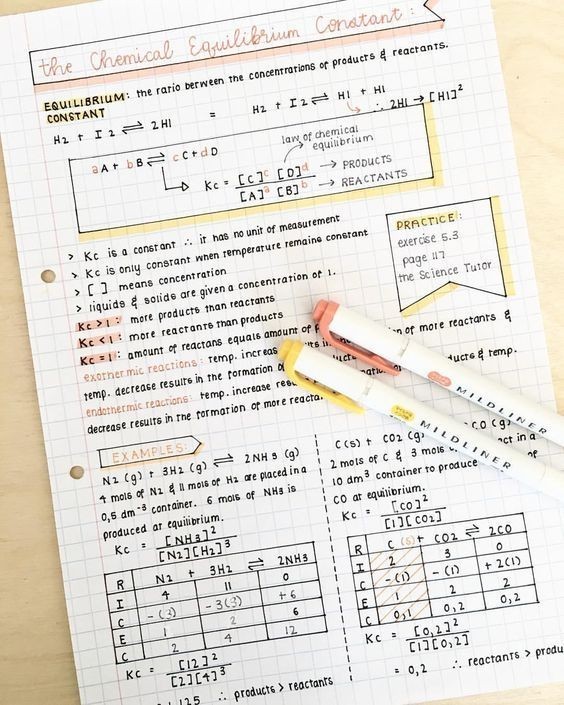 the Chemical Equilibrium Constant:
EQUILIBRIUM: the ratio between the concentrations of products & reactants.
CONSTANT
H2 + I2 ⇌ 2HI = H2 + I2 ⇌ HI + HI
∴ 2HI → [HI]²
law of chemical
equilibrium
aA + bB ⇌ cC + dD
Kc = [C]ᶜ [D]ᵈ → PRODUCTS
[A]ᵃ [B]ᵇ → REACTANTS
> Kc is a constant ∴ it has no unit of measurement
> Kc is only constant when temperature remains constant
> [ ] means concentration
> liquids & solids are given a concentration of 1.
PRACTICE:
exercise 5.3
page 117
the Science Tutor
Kc > 1: more products than reactants
Kc < 1: more reactants than products
Kc = 1: amount of reactans equals amount of
exothermic reactions: temp. increas of more reactants &
temp. decrease results in the formation of ducts & temp.
endothermic reactions: temp. increase
decrease results in the formation of more
MILDLINER
MILDLINER
EXAMPLES:
N2 (g) + 3H2 (g) ⇌ 2NH3 (g)
4 mols of N2 & 11 mols of H2 are placed in a
0,5 dm⁻³ container. 6 mols of NH3 is
produced at equilibrium.
Kc = [NH3]²
[N2][H2]³
R N2 + 3H2 ⇌ 2NH3
I 4 11 0
C -(3) -3(3) +6
E 1 2 6
C 2 4 12
Kc = [12]²
[2][4]³
1,125 ∴ products > reactants
C(s) + CO2 (g) CO (g)
2 mols of C & 3 mols ct in a
10 dm³ container to produce of
CO at equilibrium.
Kc = [CO]²
[1][CO2]
R C (s) + CO2 ⇌ 2CO
I 2 3 0
C -(1) -(1) +2(1)
E 1 2 2
C 0,1 0,2 0,2
Kc = [0,2]²
[1][0,2]
= 0,2 ∴ reactants > produ